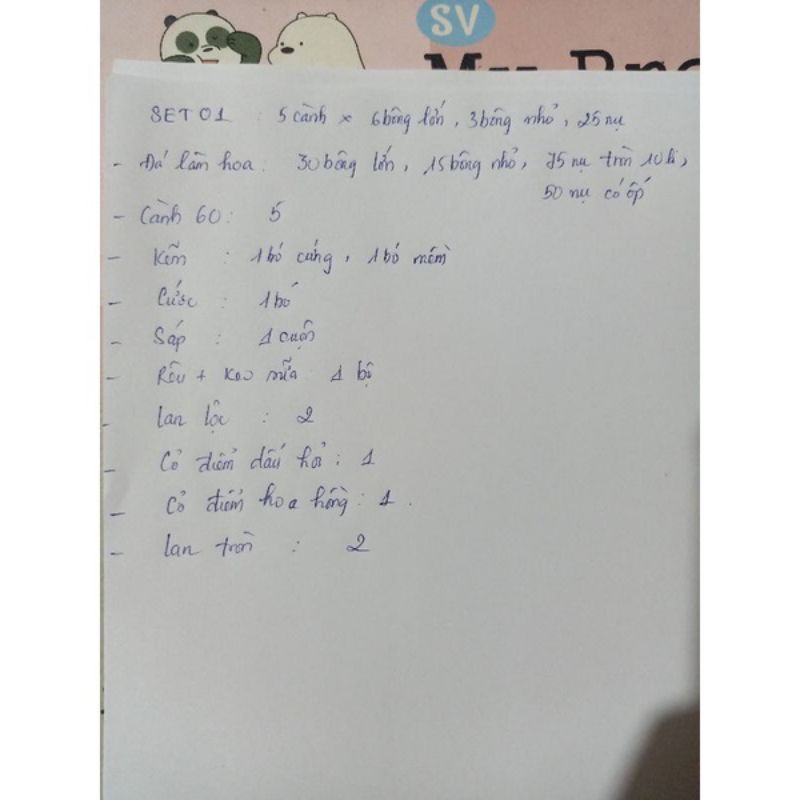 SV
My Bro
SET 01 : 5 cành x 6 bông lớn, 3 bông nhỏ, 25 nụ
- Đá làm hoa: 30 bông lớn, 15 bông nhỏ, 75 nụ tròn 10 li,
50 nụ có ốp
- Cành 60: 5
- Kẽm : 1 bó cứng, 1 bó mềm
- Cước : 1 bó
- Sáp : 1 cuộn
- Rêu + keo sữa 1 bộ
- lan lộc : 2
- Cỏ điểm dấu hỏi : 1
- Cỏ điểm hoa hồng : 1.
- lan tròn : 2